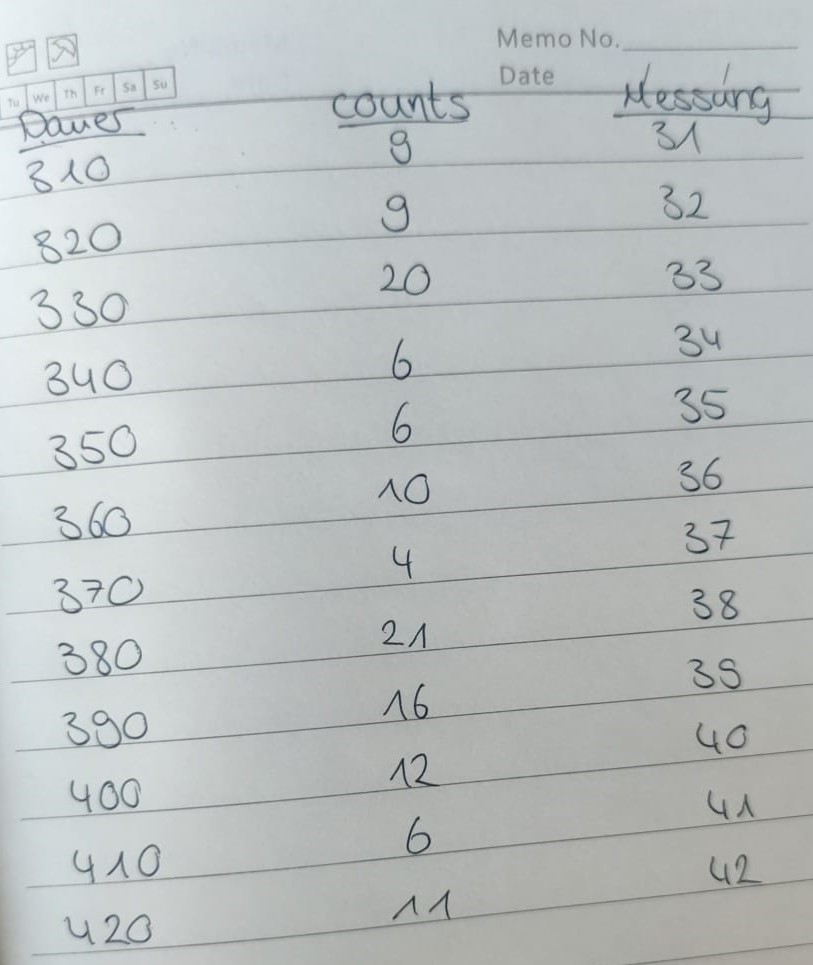 Memo No.
Date
Tu We Th Fr Sa Su
Dauer counts Messung
310 9 31
320 9 32
330 20 33
340 6 34
350 6 35
360 10 36
370 4 37
380 21 38
390 16 39
400 12 40
410 6 41
420 11 42